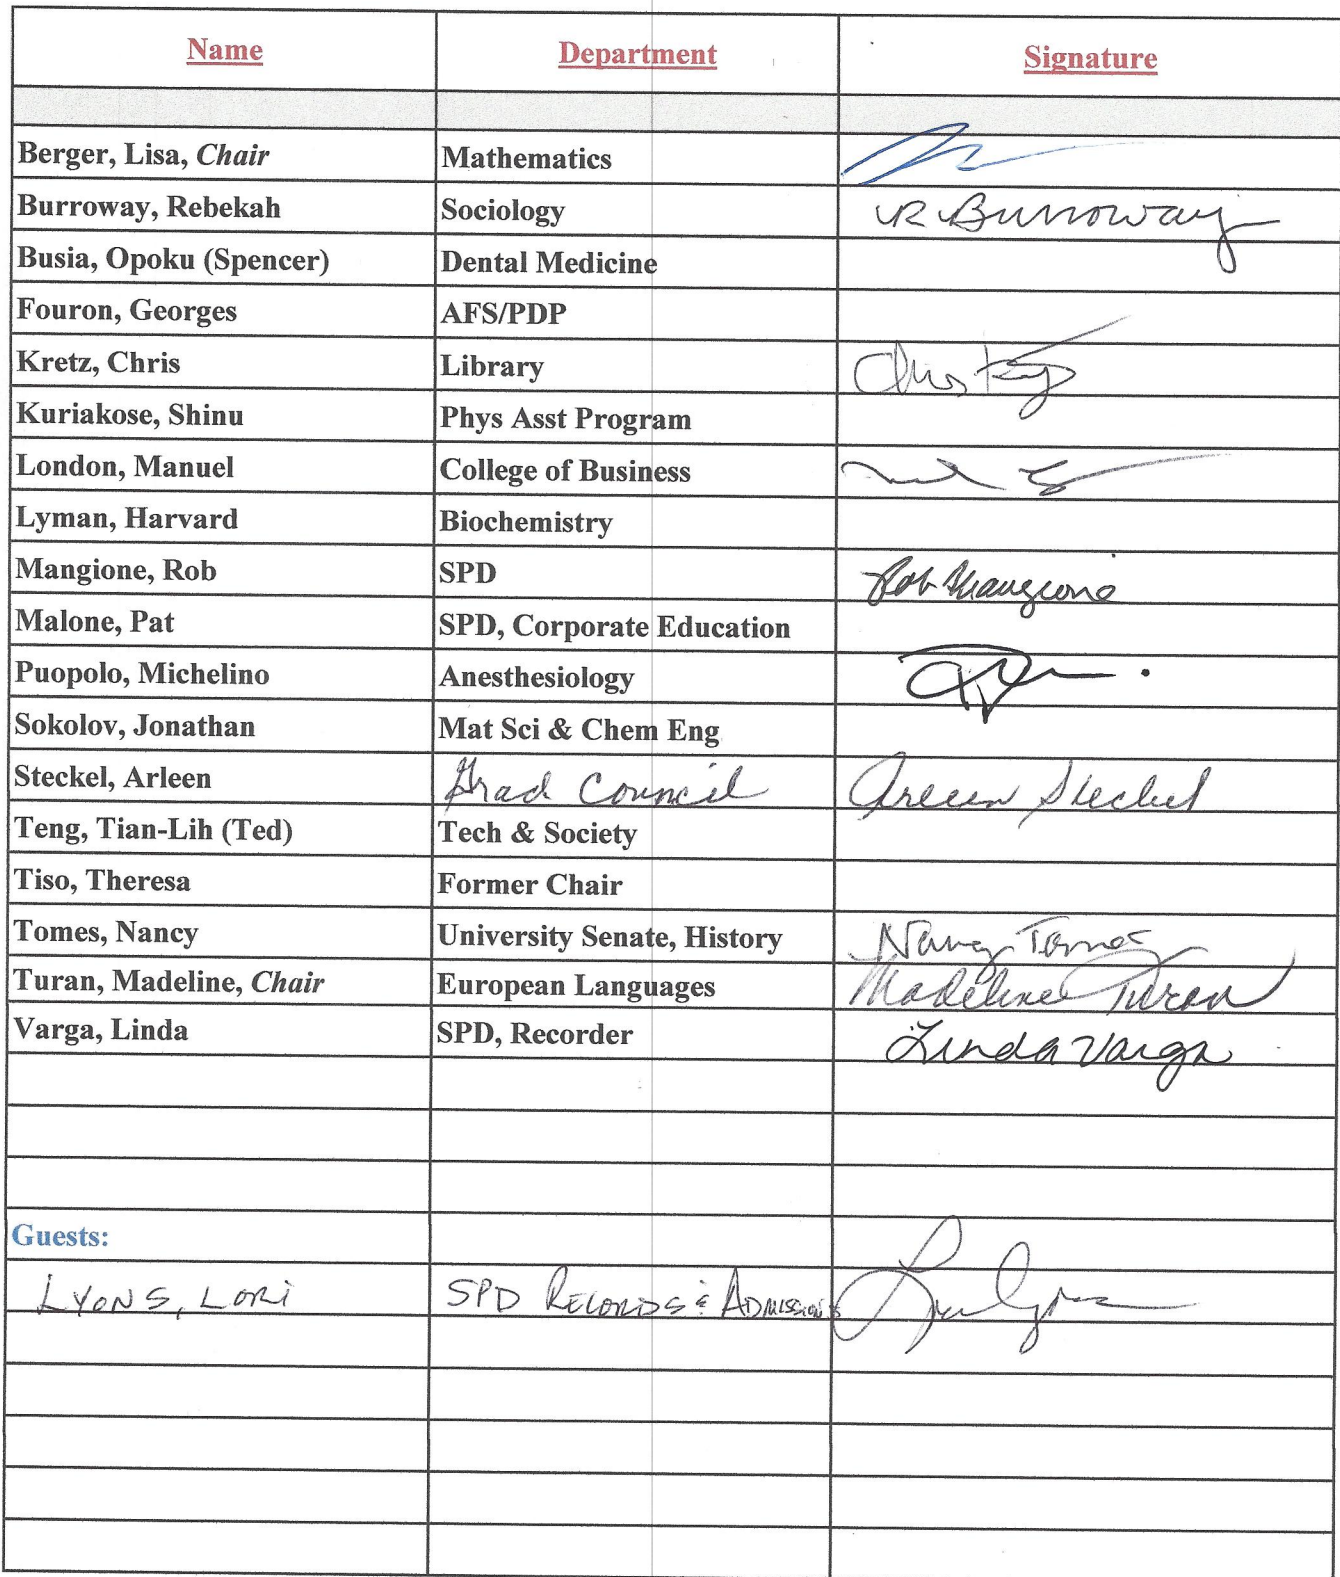 Name Department Signature
Berger, Lisa, Chair Mathematics
Burroway, Rebekah Sociology R Burroway
Busia, Opoku (Spencer) Dental Medicine
Fouron, Georges AFS/PDP
Kretz, Chris Library Chris
Kuriakose, Shinu Phys Asst Program
London, Manuel College of Business
Lyman, Harvard Biochemistry
Mangione, Rob SPD Rob Mangione
Malone, Pat SPD, Corporate Education
Puopolo, Michelino Anesthesiology
Sokolov, Jonathan Mat Sci & Chem Eng
Steckel, Arleen Grad Council Arleen Steckel
Teng, Tian-Lih (Ted) Tech & Society
Tiso, Theresa Former Chair
Tomes, Nancy University Senate, History Nancy Tomes
Turan, Madeline, Chair European Languages Madeline Turan
Varga, Linda SPD, Recorder Linda Varga
Guests:
LYONS, LORI SPD RECORDS & ADMISSIONS